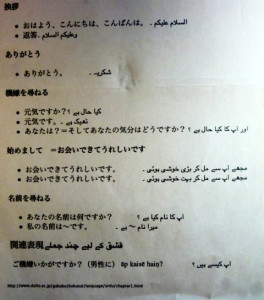 挨拶
• おはよう、こんにちは、こんばんは。 السلام علیکم ۔
• 返答۔ وعلیکم السلام
ありがとう
• ありがとう。 شکریہ ۔
機嫌を尋ねる
• 元気ですか？ کیا حال ہے ؟
• 元気です。 ٹھیک ہے ۔
• あなたは？＝そしてあなたの気分はどうですか？ اور آپ کا کیا حال ہے ؟
始めまして ＝お会いできてうれしいです
• お会いできてうれしいです。 مجھے آپ سے مل کر بڑی خوشی ہوئی ۔
• お会いできてうれしいです。 مجھے آپ سے مل کر بہت خوشی ہوئی ۔
名前を尋ねる
• あなたの名前は何ですか？ آپ کا نام کیا ہے ؟
• 私の名前は～です。 میرا نام ～ ہے ۔
関連表現 کے لیے چند جملے
ご機嫌いかがですか？（男性に） āp kaisē haiṉ? آپ کیسے ہیں ؟